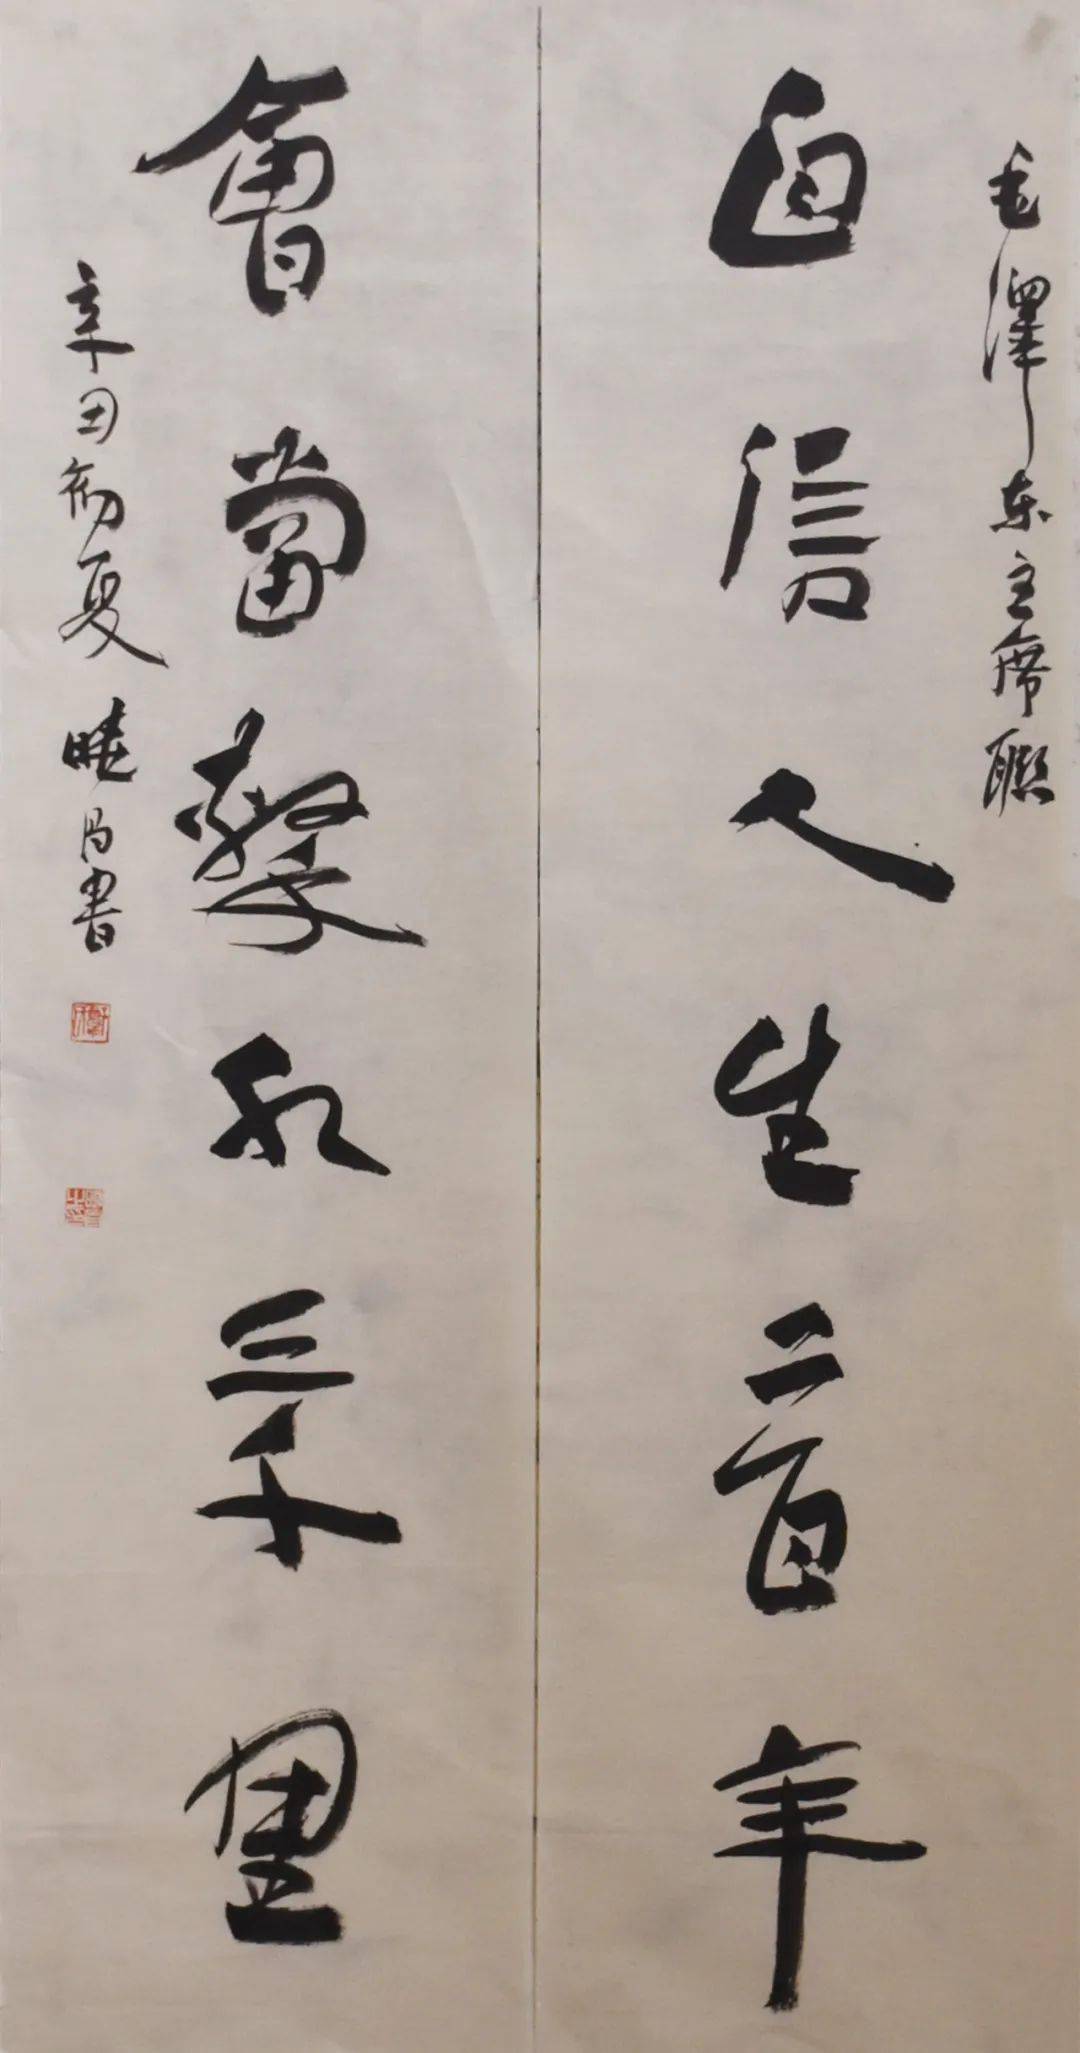 毛澤东主席聯
自信人生二百年
會當擊水三千里
辛丑初夏
曉昌書